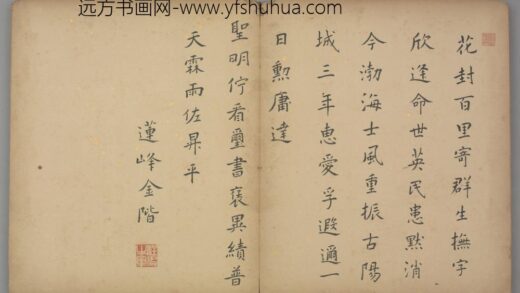 远方书画网-www.yfshuhua.com
花封百里寄群生撫字
欣逢命世英民恚黙消
今渤海士風重振古陽
城三年恵愛孚遐邇一
日勲庸達
聖明佇看璽書褒異績普
天霖雨佐昇平
蓮峰金階